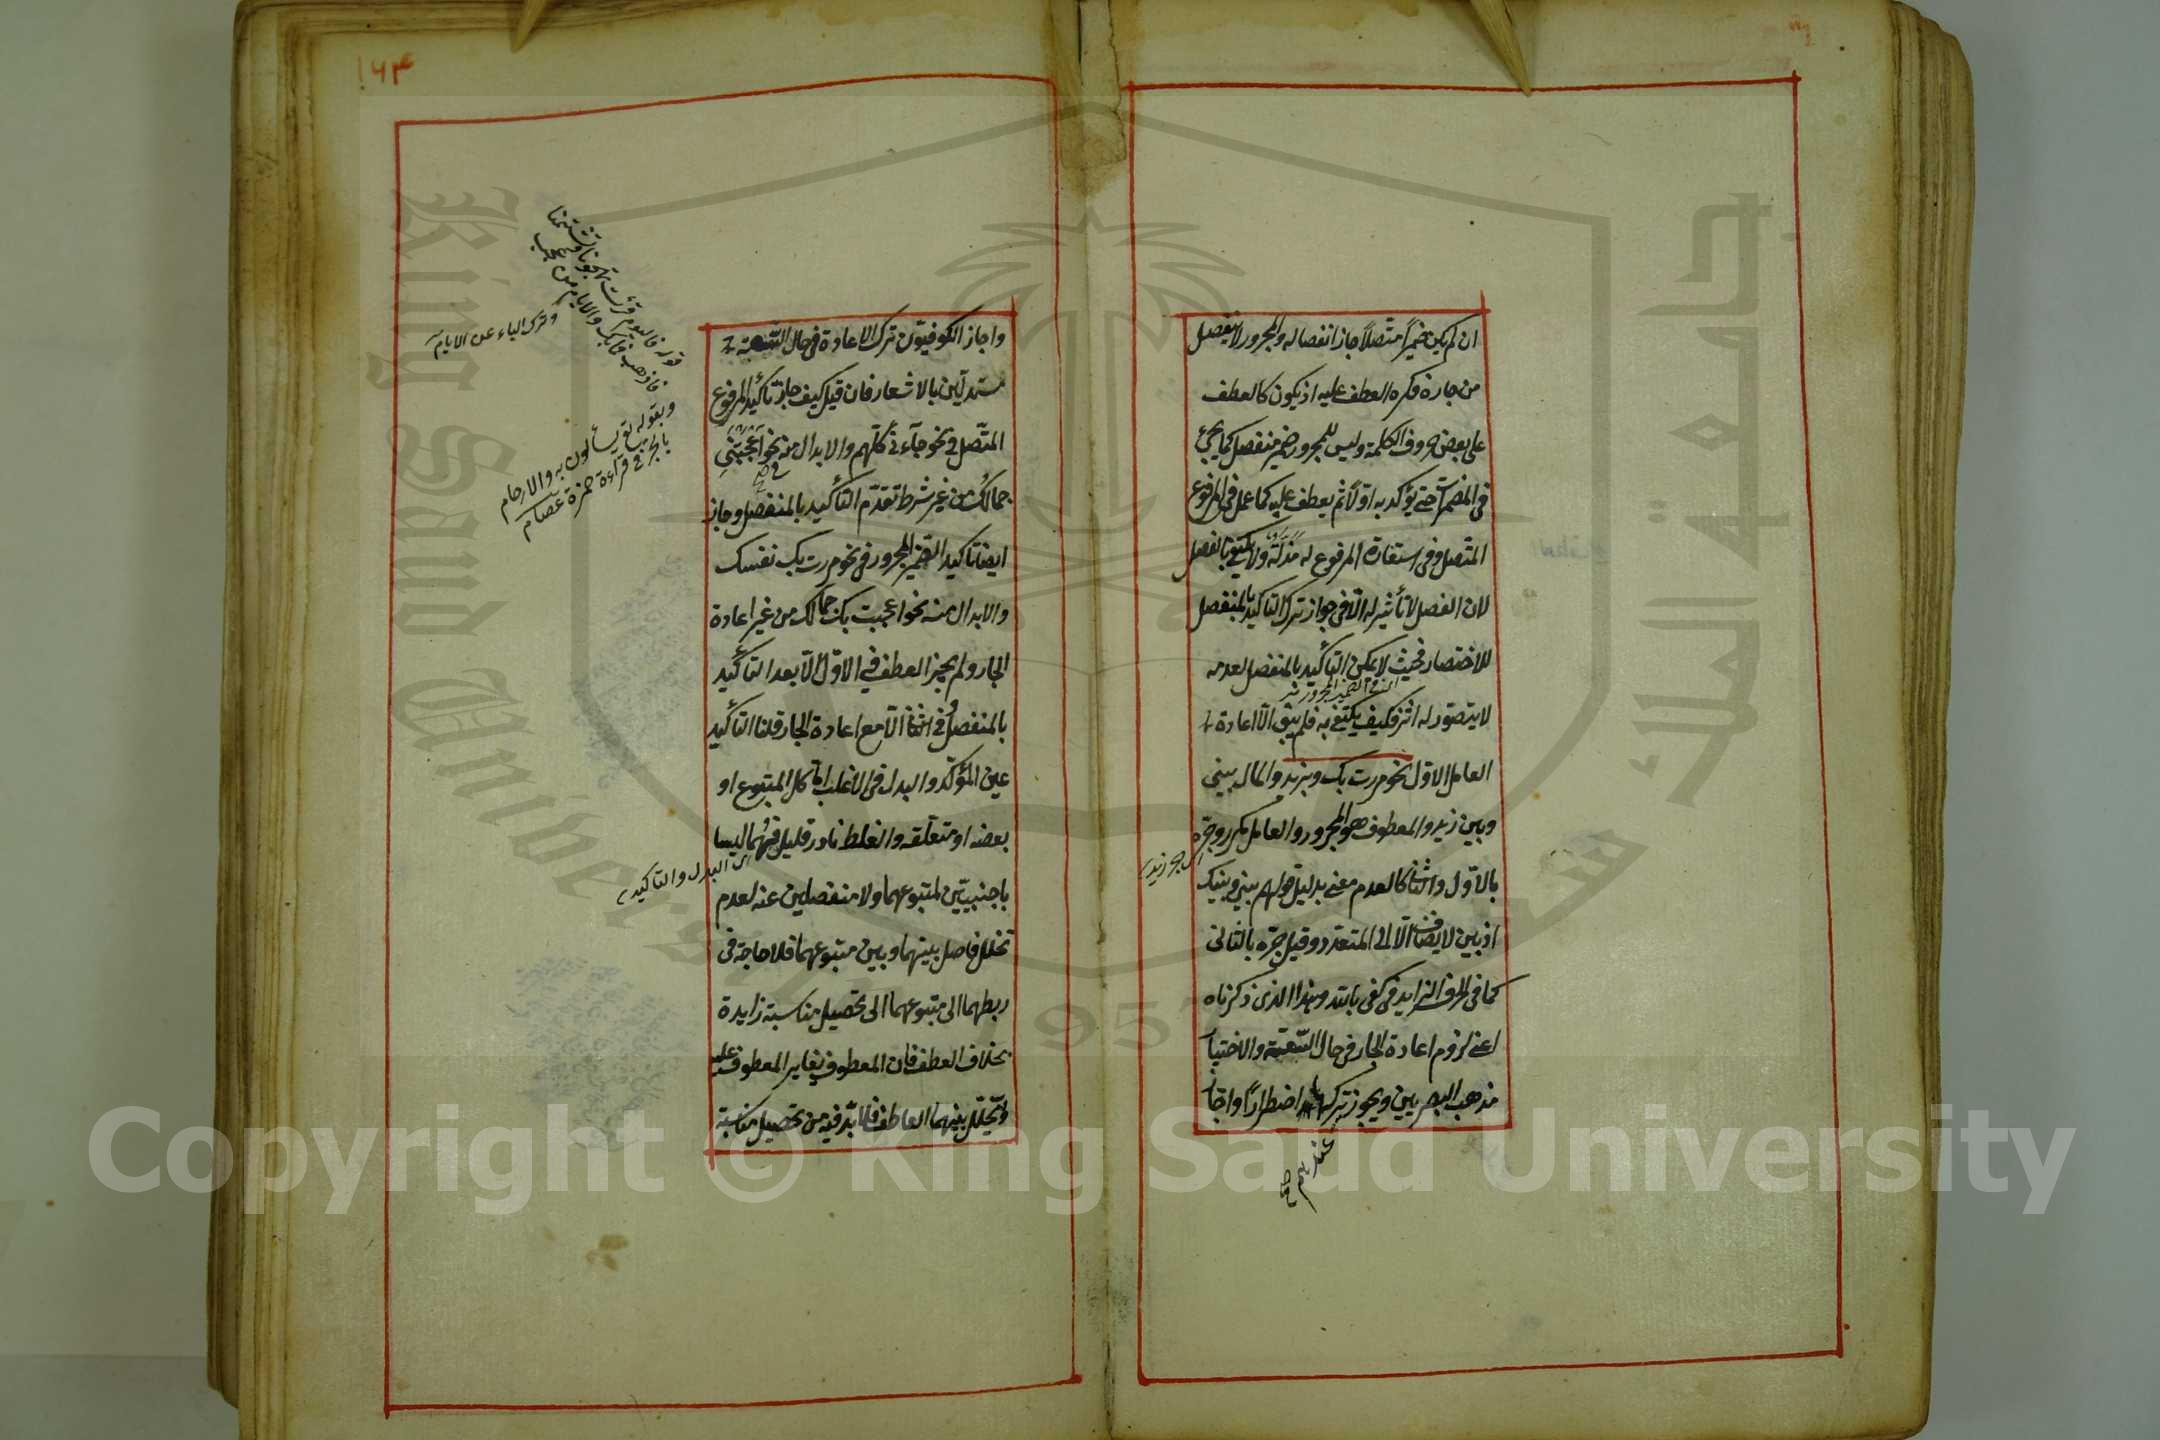 ان لم يكن ضميرا متصلا جاز انفصاله والمجرور لا ينفصل
من جاره فكره العطف عليه اذ يكون كالعطف
على بعض حروف الكلمة وليس للمجرور ضمير منفصل كما يجئ
في المضمرات حتى يؤكد به اولا ثم يعطف عليه كما عمل في المرفوع
المتصل وفي استعارة المرفوع له مذلة ولا يكتفى بالفصل
لان الفصل لا تأثير له الا في جواز ترك التاكيد بالمنفصل
للاختصار فحيث لا يمكن التأكيد بالمنفصل لعدمه
لا يتصور له اثر فكيف يكتفى به فلم يبق الا اعادة
العامل الاول نحو مررت بك وبزيد والمال بينى
وبين زيد والمعطوف هو المجرور والعامل مكرر وجره
اى جر زيد
بالاول والثانى كالعدم معنى بدليل قولهم بينى وبينك
اذ بين لا يضاف الا الى المتعدد وقيل جره بالثانى
كما في الحرف الزايد في كفى بالله وهذا الذى ذكرناه
اعنى لزوم اعادة الجار في حال السعة والاختيار
مذهب البصريين ويجوز تركها اضطرارا واجاز
عندهم صح
١٦٣
واجاز الكوفيون ترك الاعادة في حال السعة
مستدلين بالاشعار فان قيل كيف جاز تأكيد المرفوع
المتصل في نحو جاءنى كلهم والابدال منه نحو اعجبتنى
جمالك من غير شرط تقدم التأكيد بالمنفصل وجاز
ايضا تاكيد الضمير المجرور في نحو مررت بك نفسك
والابدال منه نحو اعجبت بك جمالك من غير اعادة
الجار ولم يجز العطف في الاول الا بعد التأكيد
بالمنفصل وفي الثانى الا مع اعادة الجار قلنا التأكيد
عين المؤكد والبدل في الاغلب اما كل المتبوع او
بعضه او متعلقه والغلط نادر قليل فهما ليسا
اى البدل والتاكيد
باجنبيين لمتبوعهما ولا منفصلين عنه لعدم
تخلل فاصل بينهما وبين متبوعهما فلا حاجة في
ربطهما الى متبوعهما الى تحصيل مناسبة زايدة
بخلاف العطف فان المعطوف يغاير المعطوف عليه
ويتخلل بينهما العاطف فلا بد فيه من تحصيل مناسبة
قوله فاليوم قربت تهجونا وتشتمنا
فاذهب فما بك والايام من عجب
وترك الباء عن الايام
وبقوله تع تسألون به والارحام
بالجر في قراءة حمزة عصام
Copyright © King Saud University
King Saud University
جامعة الملك سعود